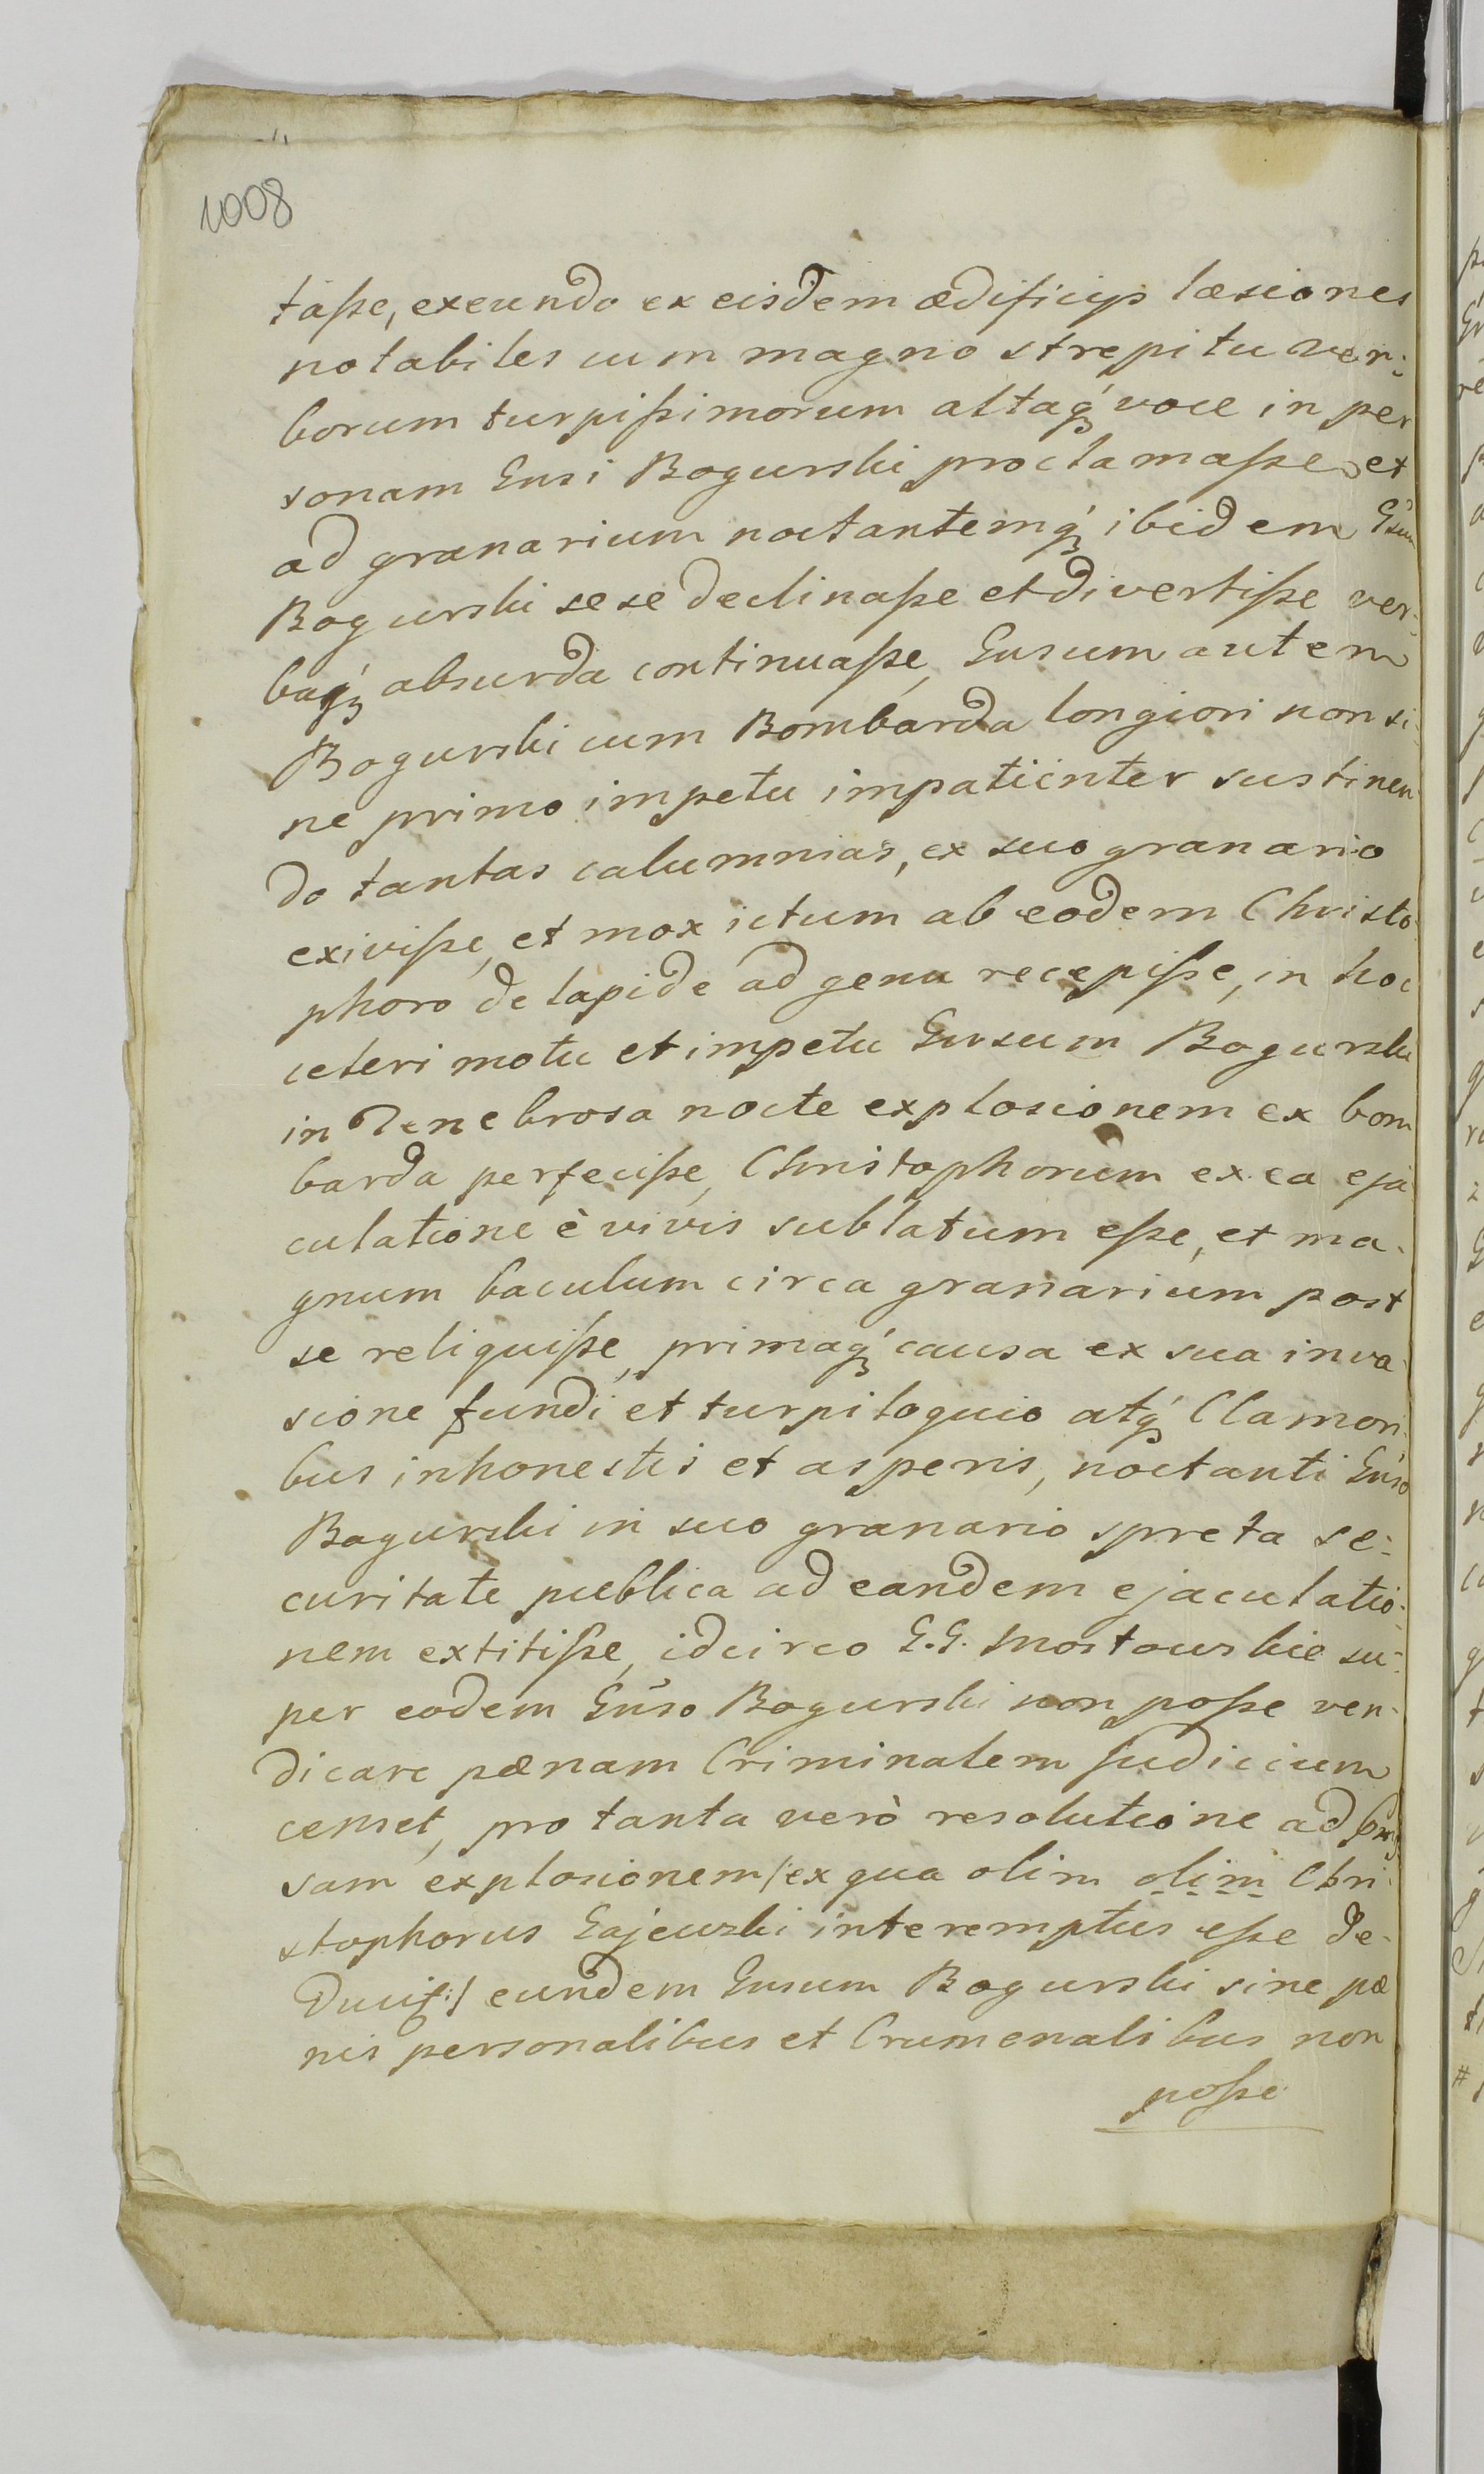 1008
taſse, exeundo ex eisdem ædificijs læsiones
notabiles cum magno strepitu ver:
borum turpiſsimorum altaq́ꝫ voce in per
sonam Gnsi Bogurski proclamaſse et
ad granarium noctantemq́ꝫ ibidem Gsum
Bogurski sese declinaſse et divertiſse ver:
baq́ꝫ absurda continuaſse, Gnsum autem
Bogurski cum Bombarda longiori non si
ne primo impetu impatienter sustinen
do tantas calumnias, ex suo granario
exiviſse, et mox ictum ab eodem Christo
phoro de lapide ad genu recepiſse, in hoc
celeri motu et impetu Gnsum Bogurski
in Tenebrosa nocte explosionem ex bom
barda perfeciſse, Christophorum ex ea eja
culatione è vivis sublatum eſse, et ma-
gnum baculum circa granarium post
se reliquiſse, primaq́ꝫ causa ex sua inva-
sione fundi et turpiloquio atq́ꝫ Clamori
bus inhonestis et asperis, noctanti Gnso
Bogurski in suo granario spreta se:
curitate publica ad eandem ejaculatio:
nem extitiſse, idcirco G.G. Mostowskie su:
per eodem Gnso Bogurski non poſse ven-
dicare pænam Criminalem Judicium
censet, pro tanta verò resolutione ad
sam explosionem /:ex qua olim olim Chri
stophorus Gajewski interemptus eſse de-
Ducit:/ eundem Gnsum Bogurski sine pæ
nis personalibus et Crumenalibus non
poſse